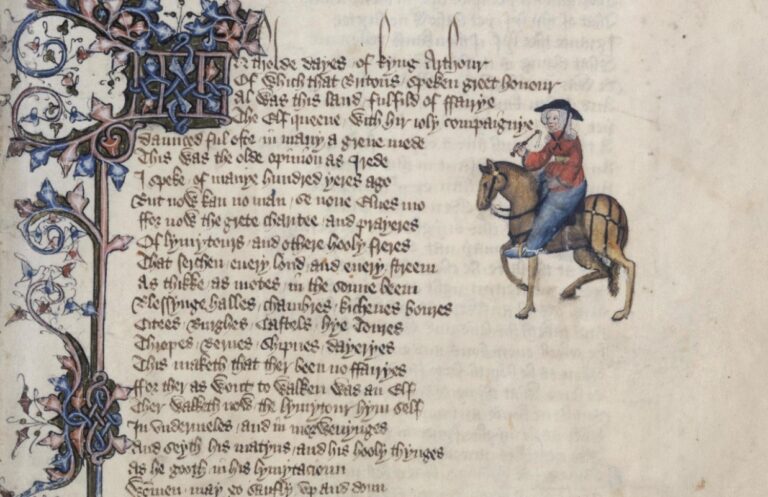 IN tholde dayes of kyng Arthour
Of which that Britons speken greet honour
Al was this land fulfild of ffairye
The Elf queene with hir ioly compaignye
Daunced ful ofte in many a grene mede
This was the olde opinion as I rede
I speke of manye hundred yeres ago
But now kan no man se none Elues mo
ffor now the grete charitee and prayeres
Of lymytours and othere hooly freres
That serchen euery lond and euery streem
As thikke as motes in the sonne beem
Blessynge halles chambres kichenes boures
Citees Burghes Castels hye Toures
Thropes Bernes Shipnes dayeryes
This maketh that ther been no ffairyes
ffor ther as wont to walken was an Elf
Ther walketh now the lymytour hym self
In vndermeles and in morwenynges
And seyth his matyns and his hooly thynges
As he gooth in his lymytacioun
Wommen may go saufly vp and doun